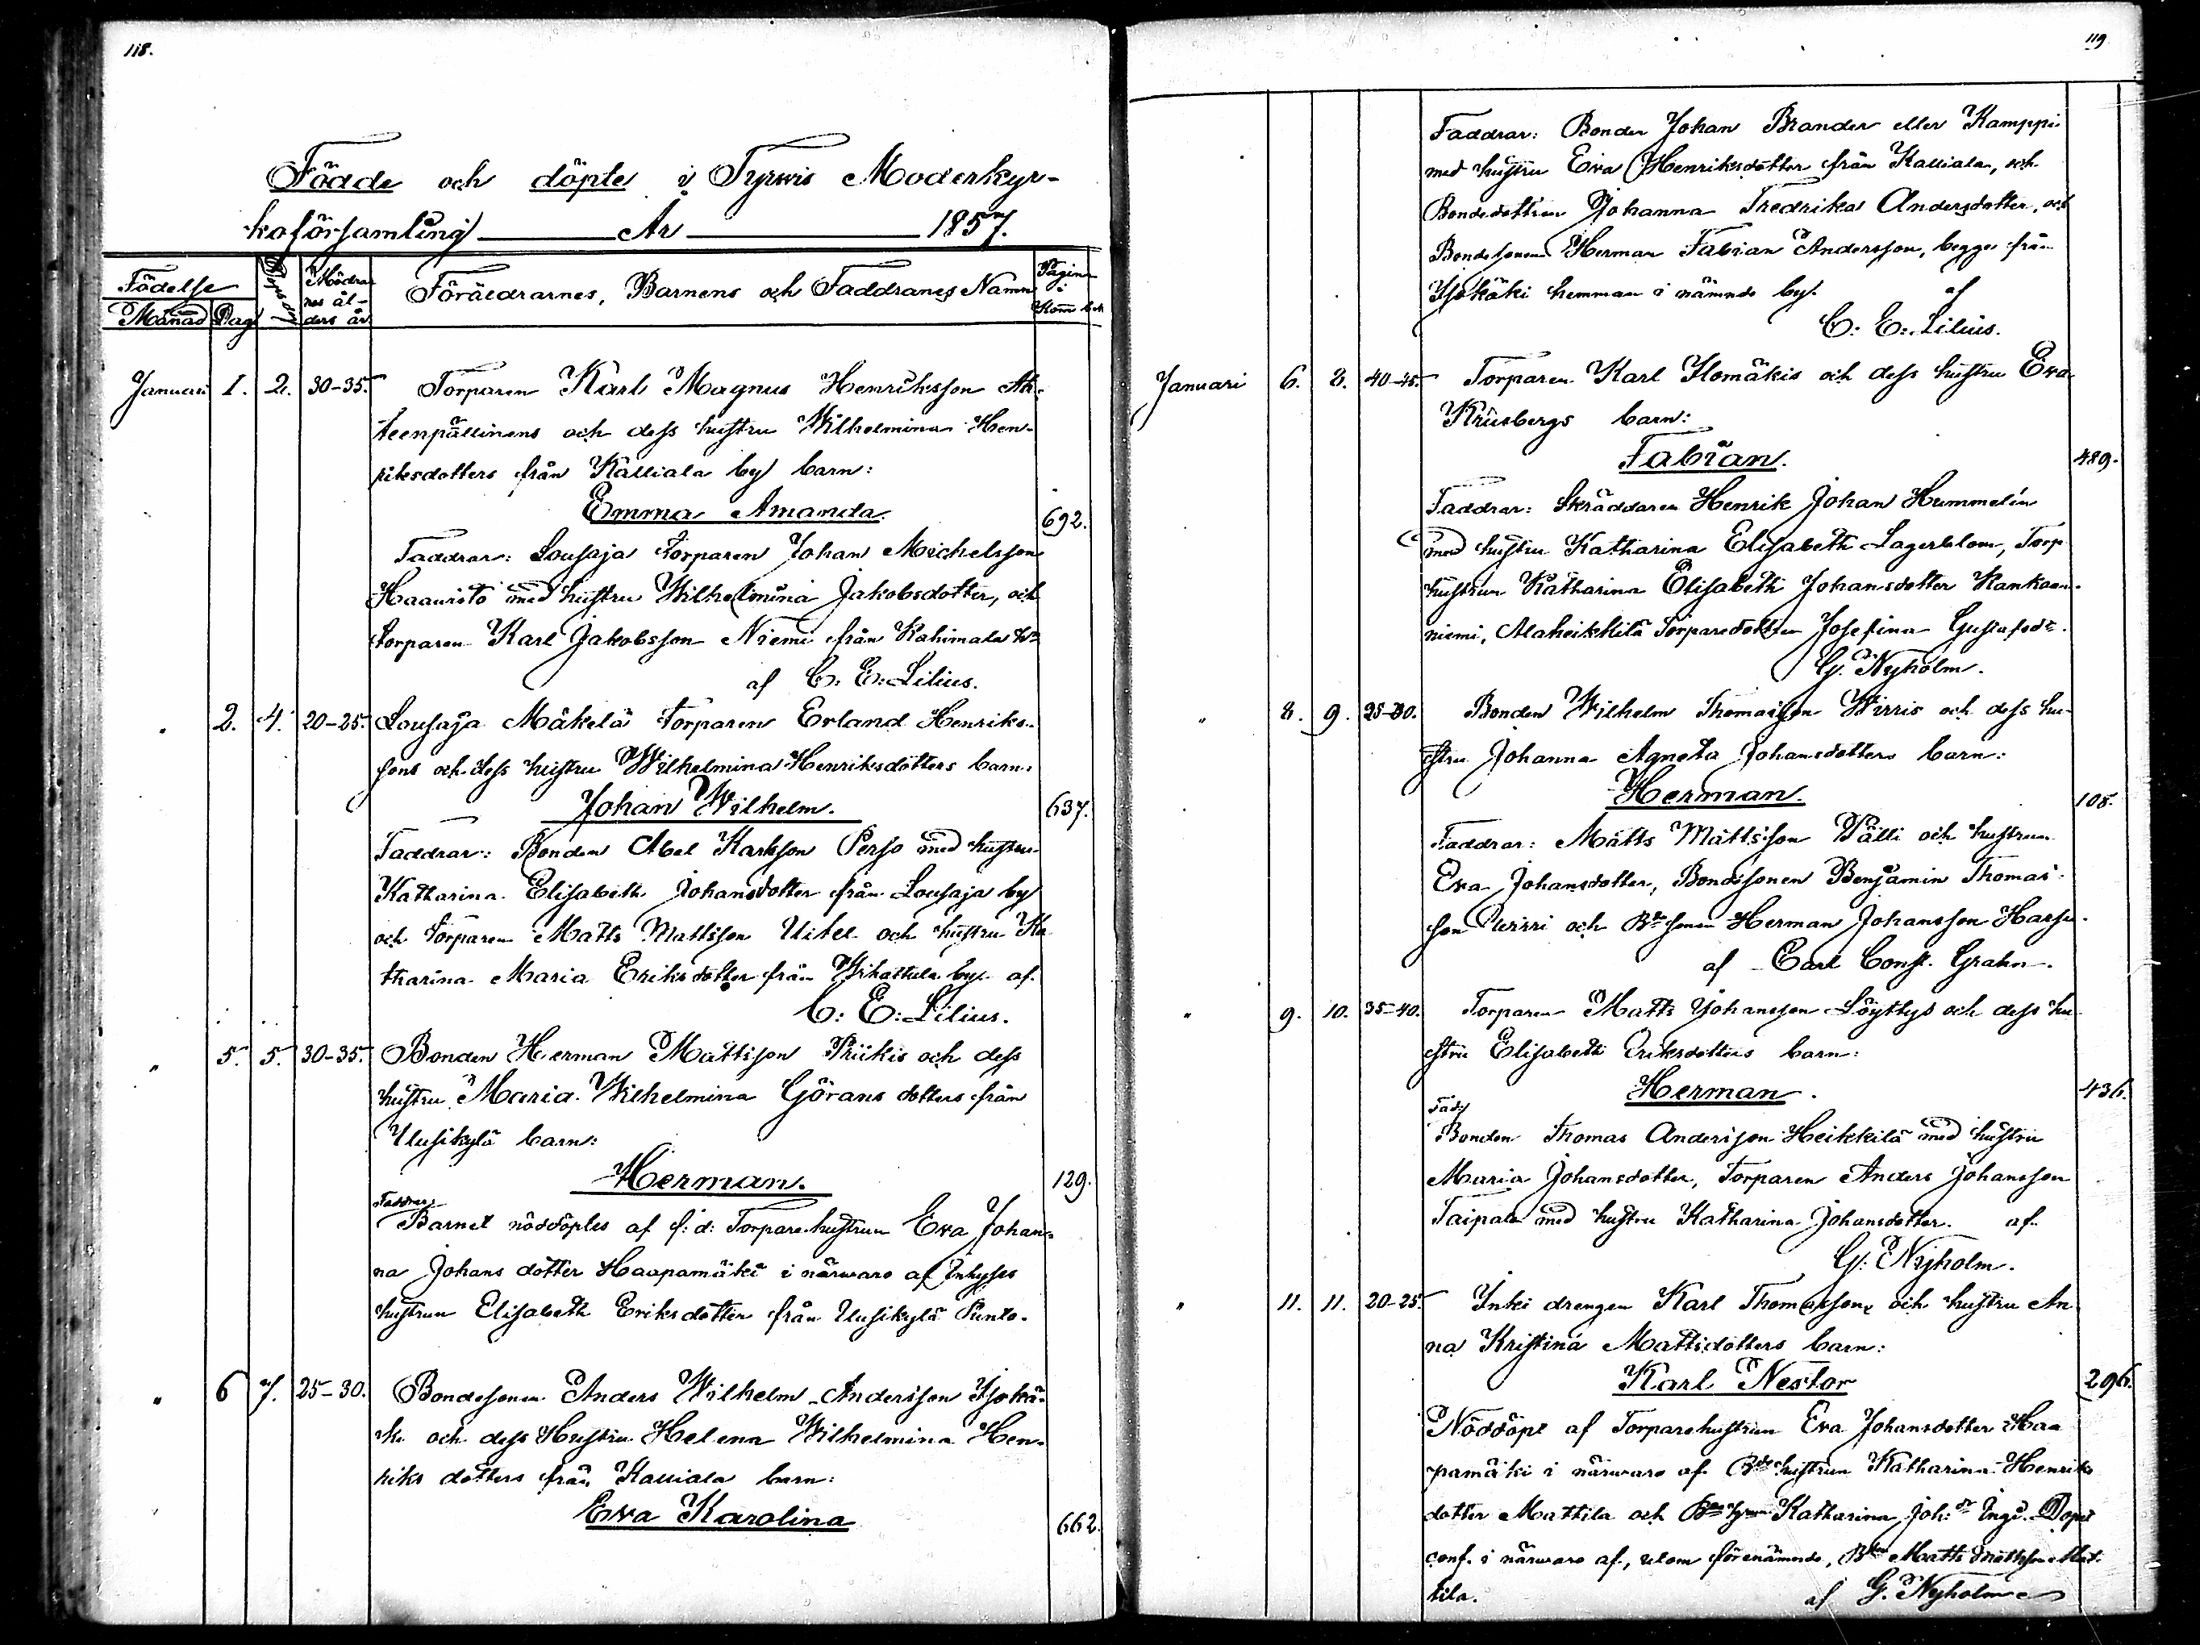 118.
Födde och döpte i Tyrwis Moderkyr-
koförsamling År 1857.
Födelse
Månad Dag
Mödrar
nes ål-
ders år
Föräldrarnes, Barnens och Faddranes Namn
Pagina
i
Kom bok
Januari 1. 2. 30-35. Torparen Karl Magnus Henriksson
teenpällinens och dess hustru Wilhelmina Hen-
riksdotters från Kalliala by barn:
Emma Amanda. 692.
Faddrar: Lousaja torparen Johan Michelsson
Haavisto med hustru Wilhelmina Jakobsdotter, och
torparen Karl Jakobsson Niemi från Kahimala
af C: E: Lilius.
" 2. 4. 20-25. Lousaja Mäkelä torparen Erland Henriks-
sons och dess hustru Wilhelmina Henriksdotters barn:
Johan Wilhelm. 637.
Faddrar: Bonden Abel Karlsson Perso med hustru
Katharina Elisabeth Johansdotter från Lousaja by
och torparen Matts Mattsson och hustru Ka
tharina Maria Eriksdotter från Wihattula by. af
C: E: Lilius.
" 5. 5. 30-35. Bonden Herman Mattsson Priikis och dess
hustru Maria Wilhelmina Görans dotters från
Uusikylä barn:
Herman. 129.
Faddrar
Barnet nöddöptes af f: d: Torpare hustrun Eva Johan-
na Johans dotter Haapamäki i närwaro af Inhyses
hustrun Elisabeth Eriksdotter från Uusikylä Punto.
" 6 7. 25-30. Bondesonen Anders Wilhelm Andersson Isokä-
ki och dess Hustru Helena Wilhelmina Hen-
riks dotters från Kalliala barn:
Eva Karolina 662.
119
Faddrar: Bonden Johan Brander eller Kamppi
med hustru Eva Henriksdotter från Kalliala, och
Bondedottren Johanna Fredrika Andersdotter, och
Bondesonen Herman Fabian Andersson, begge från
Isokäki hemman i nämnde by. af
C: E: Lilius.
Januari 6. 8. 40-45. Torparen Karl Ilomäkis och dess hustru Eva
Kriisbergs barn:
Fabian. 489.
Faddrar: Skräddaren Henrik Johan Hummelin
med hustru Katharina Elisabeth Lagerblom, Torp
hustrun Katharina Elisabeth Johansdotter Kankaan-
niemi, Alaheikkilä Torparedotter Josefina Gustafsdr.
G. Nyholm.
" 8. 9. 25-30. Bonden Wilhelm Thomasson Wirris och dess hu-
stru Johanna Agneta Johansdotters barn:
Herman. 108.
Faddrar: Matts Mattsson Wälli och hustrun
Eva Johansdotter, Bondesonen Benjamin Thomas-
son Wirri och Bdesonen Herman Johansson Harju.
af Carl Const. Grahn.
" 9. 10. 35-40. Torparen Matts Johansson Löyttys och dess hu
stru Elisabeth Eriksdotters barn:
Herman. 436.
Fadd
Bonden Thomas Andersson Heikkilä med hustru
Maria Johansdotter, Torparen Anders Johansson
Taipale med hustru Katharina Johansdotter. af
G: Nyholm.
" 11. 11. 20-25. Inki drengen Karl Thomassons och hustru An
na Kristina Mattsdotters barn:
Karl Nestor 296.
Nöddöpt af Torparehustrun Eva Johansdotter Haa
pamäki i närwaro af Bdehustrun Katharina Henriks
dotter Mattila och Katharina Joh:dr Ingi. Dopet
conf. i närwaro af, utom förenämnde, Bden Matts Mattsson Mat-
tila. af G. Nyholm